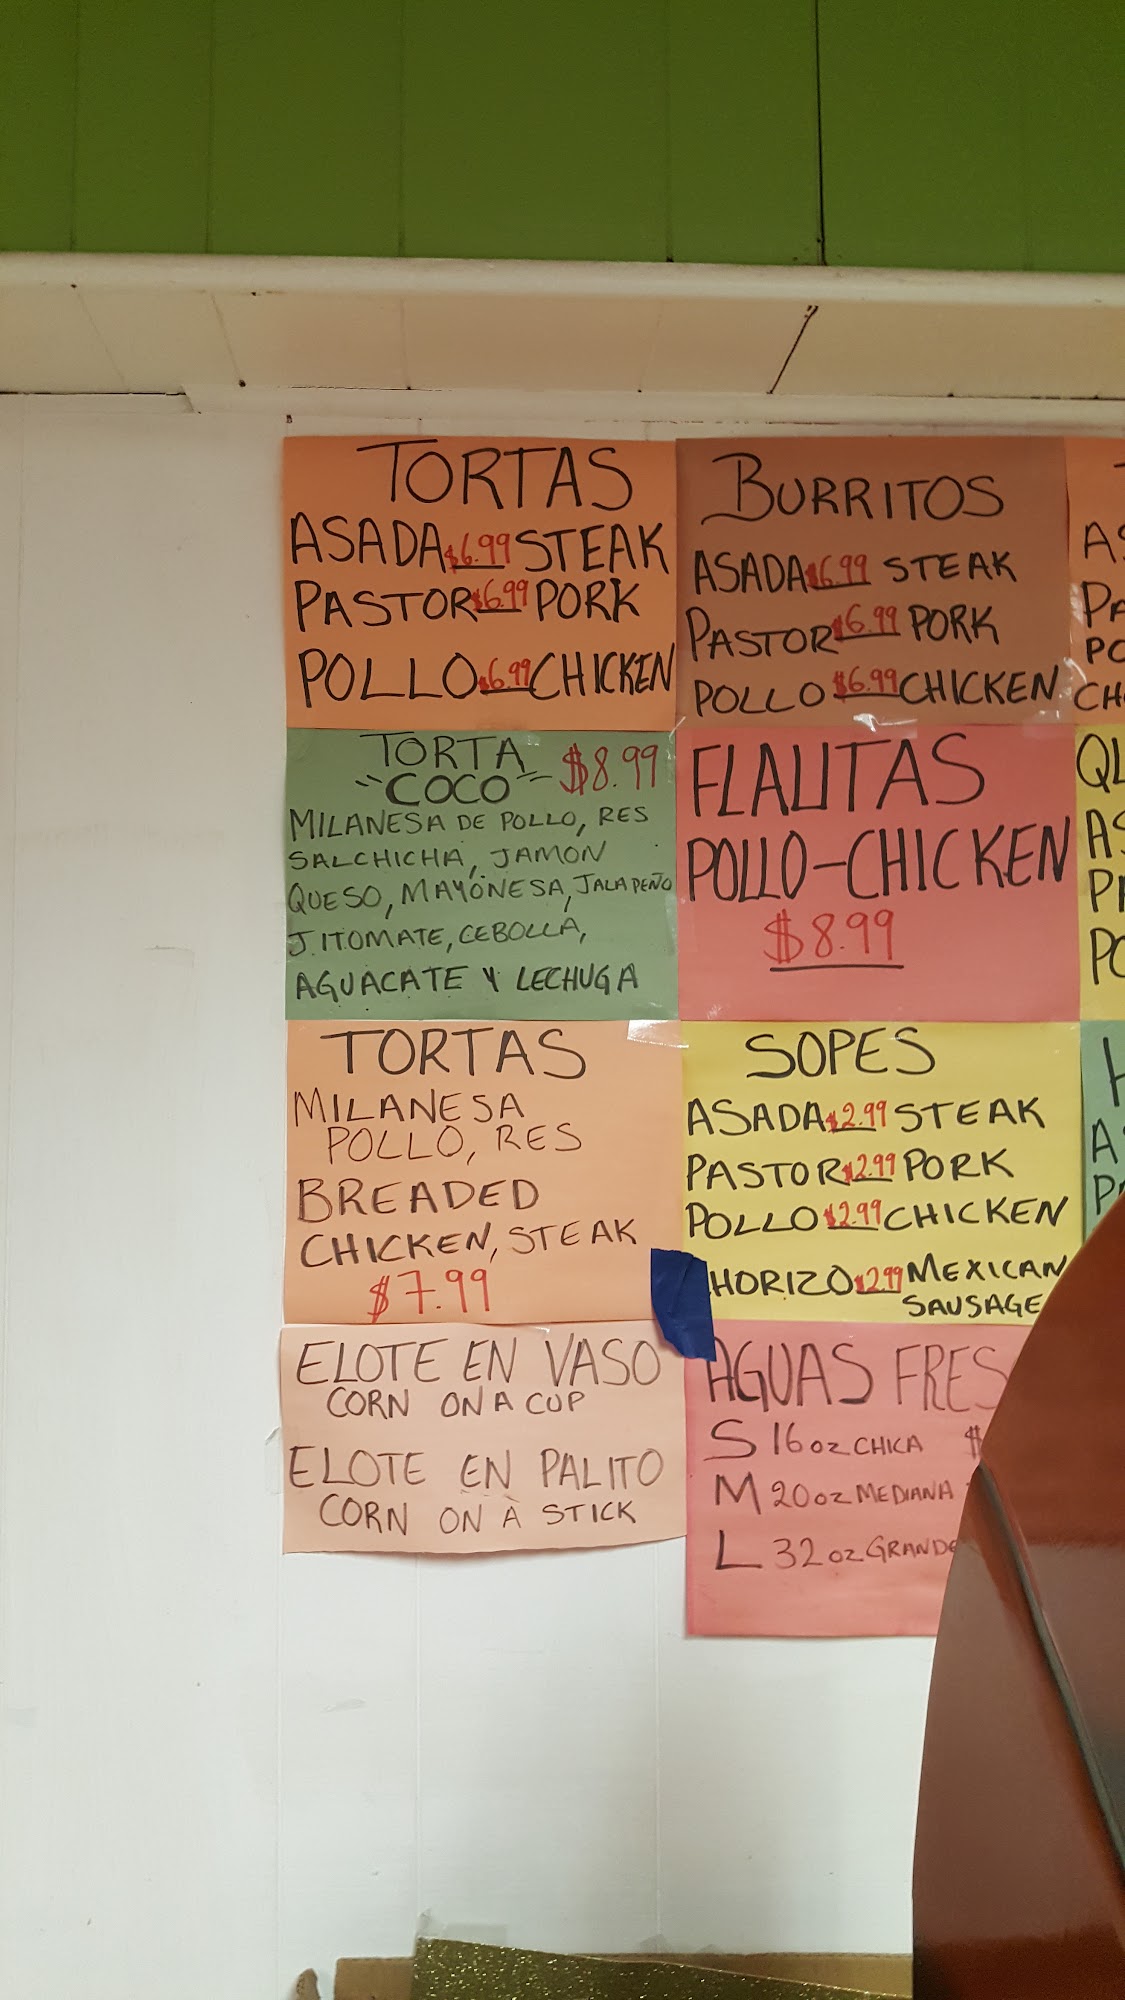 TORTAS
ASADA $6.99 STEAK
PASTOR $6.99 PORK
POLLO $6.99 CHICKEN
BURRITOS
ASADA $6.99 STEAK
PASTOR $6.99 PORK
POLLO $6.99 CHICKEN
TORTA $8.99
"COCO"
MILANESA DE POLLO, RES
SALCHICHA, JAMON
QUESO, MAYONESA, JALAPEÑO
JITOMATE, CEBOLLA,
AGUACATE Y LECHUGA
FLAUTAS
POLLO-CHICKEN
$8.99
TORTAS
MILANESA
POLLO, RES
BREADED
CHICKEN, STEAK
$7.99
SOPES
ASADA $2.99 STEAK
PASTOR $2.99 PORK
POLLO $2.99 CHICKEN
HORIZO $2.99 MEXICAN
SAUSAGE
ELOTE EN VASO
CORN ON A CUP
ELOTE EN PALITO
CORN ON A STICK
AGUAS FRES
S 16oz CHICA $
M 20oz MEDIANA
L 32oz GRANDE